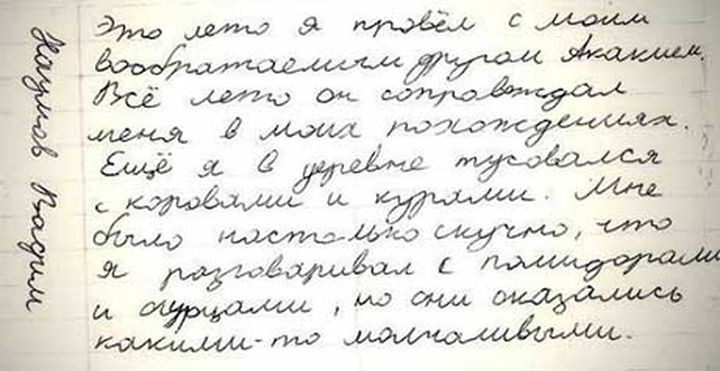 Это лето я провёл с моим
вообратаемым другом Акакием.
Всё лето он сопровждал
меня в моих похождениях.
Ещё я в деревне тусовался
с коровами и курями. Мне
было настолько скучно, что
я разговаривал с помидорами
и огурцами, но они оказались
какими-то молчаливыми.
Наумов Вадим